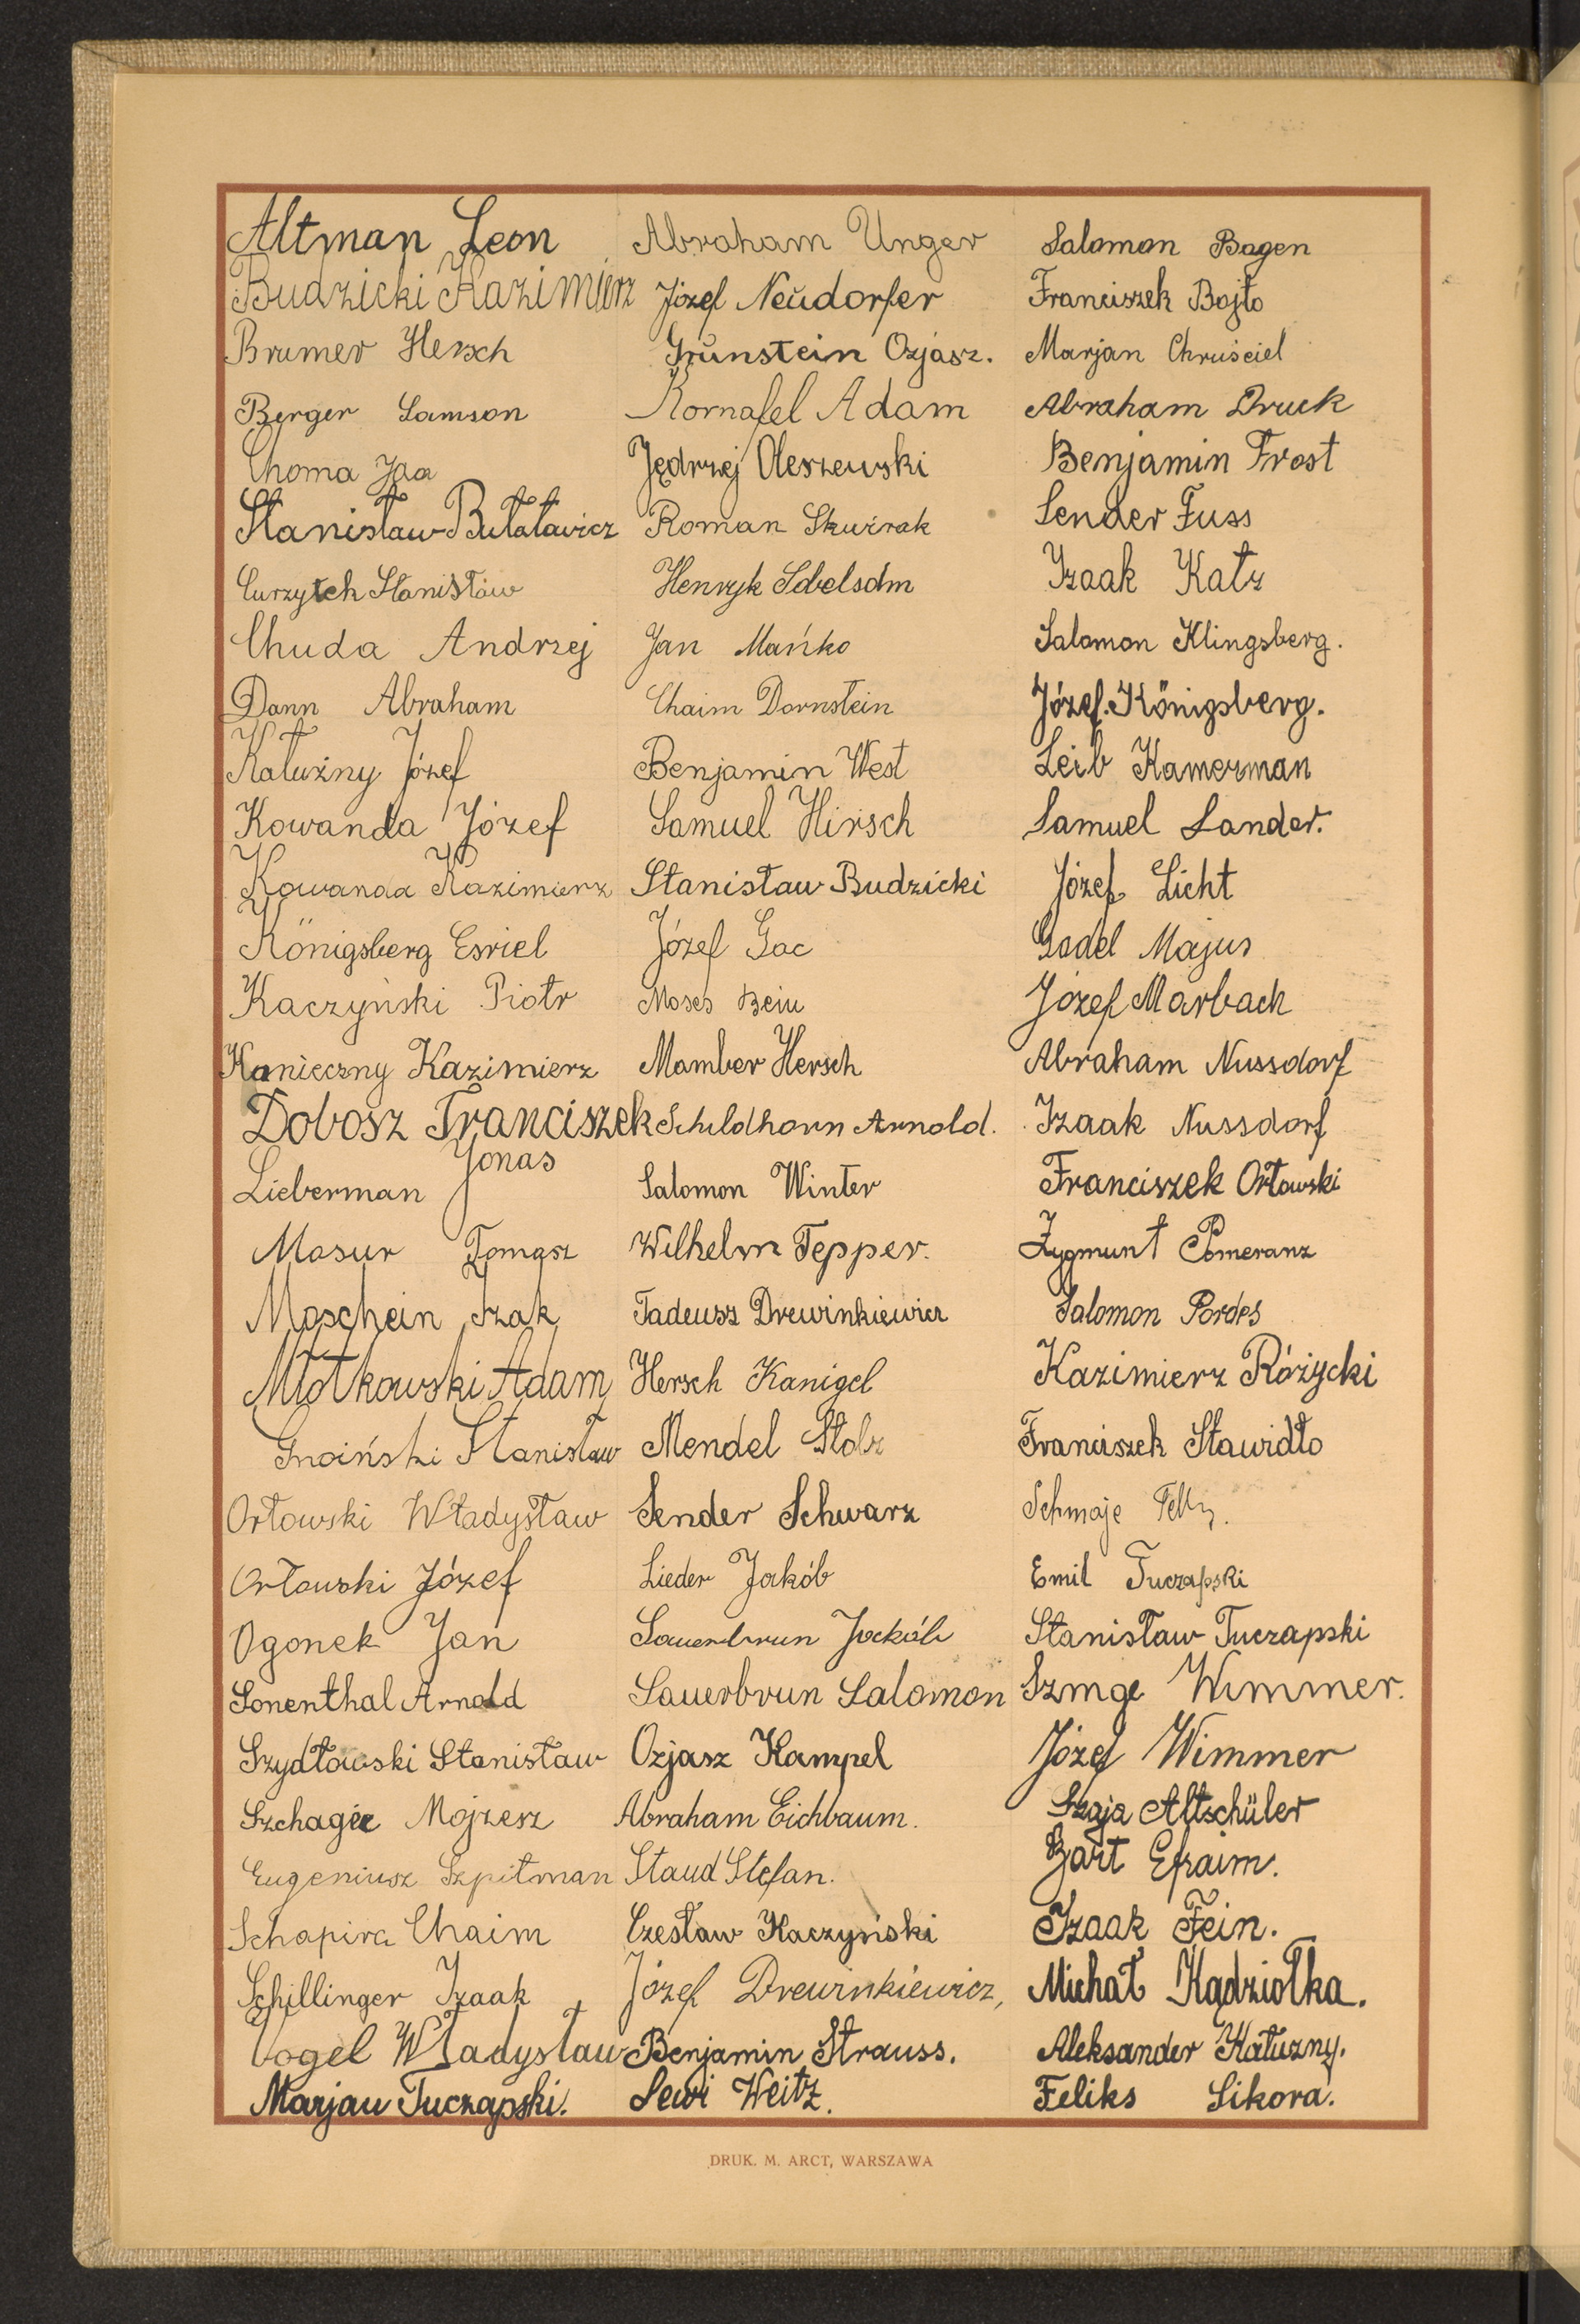 Altman Leon
Budzicki Kazimierz
Brumer Hersch
Berger Samson
Choma Jan
Stanisław Bułatawicz
Curzytek Stanisław
Chuda Andrzej
Dann Abraham
Kałużny Józef
Kowanda Józef
Kowanda Kazimierz
Königsberg Esriel
Kaczyński Piotr
Konieczny Kazimierz
Dobosz Franciszek
Lieberman Jonas
Masur Tomasz
Moschein Izak
Młotkowski Adam
Gnoiński Stanisław
Orłowski Władysław
Orłowski Józef
Ogonek Jan
Sonenthal Arnold
Szydłowski Stanisław
Szchager Mojzesz
Eugeniusz Szpitman
Schapira Chaim
Schillinger Izaak
Vogel Władysław
Marjan Tuczapski.
Abraham Unger
Józef Neŭdorfer
Grŭnstein Ozjasz.
Kornafel Adam
Jędrzej Oleszewski
Roman Skwirak
Henryk
Jan Mańko
Chaim Dornstein
Benjamin West
Samuel Hirsch
Stanisław Budzicki
Józef Gac
Moses
Mamber Hersch
Schildhorn Arnold.
Salomon Winter
Wilhelm Tepper.
Tadeusz Drewinkiewicz
Hersch Kanigel
Mendel Stolz
Sender Schwarz
Lieder Jakób
Sauerbrun Jackób
Sauerbrun Salomon
Ozjasz Kampel
Abraham Eichbaum.
Staud Stefan.
Czesław Kaczyński
Józef Drewinkiewicz,
Benjamin Strauss.
Lewi Weitz.
Salomon Bagen
Franciszek Bojto
Marjan Chruściel
Abraham Druck
Benjamin Frost
Sender Fuss
Izaak Katz
Salomon Klingsberg.
Józef Königsberg.
Leib Kamerman
Samuel Lander.
Józef Licht
Gadel Majus
Józef Marbach
Abraham Nussdorf
Izaak Nussdorf
Franciszek Orłowski
Zygmunt Pomeranz
Salomon Pordes
Kazimierz Różycki
Franciszek Stawidło
Schmaje
Emil Tuczapski
Stanisław Tuczapski
Szmge Wimmer.
Józef Wimmer
Szaja Altschüler
Zart Efraim.
Izaak Fein.
Michał Kądziołka.
Aleksander Kałuzny.
Feliks Sikora.
DRUK. M. ARCT, WARSZAWA